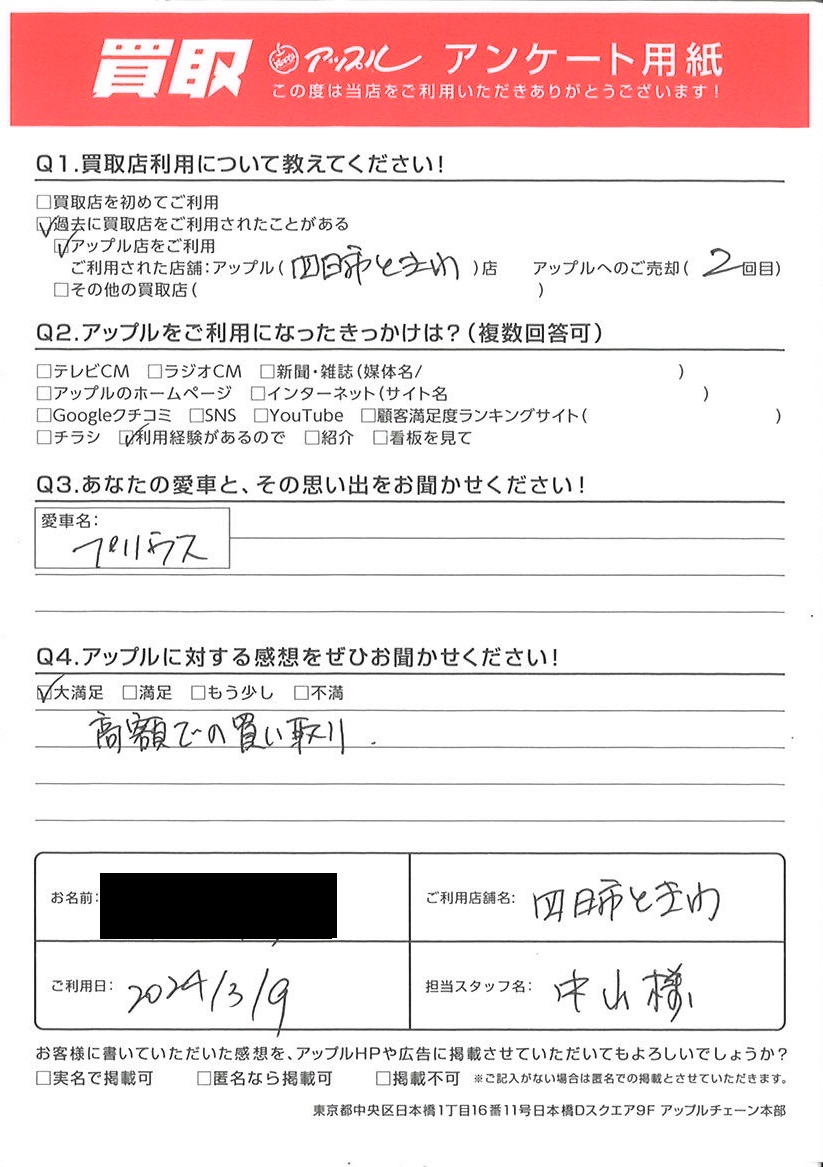 買取 アップル アンケート用紙
この度は当店をご利用いただきありがとうございます！
Q1.買取店利用について教えてください！
□買取店を初めてご利用
☑過去に買取店をご利用されたことがある
☑アップル店をご利用
ご利用された店舗：アップル（四日市ときわ）店 アップルへのご売却（2回目）
□その他の買取店（ ）
Q2.アップルをご利用になったきっかけは？（複数回答可）
□テレビCM □ラジオCM □新聞・雑誌（媒体名/ ）
□アップルのホームページ □インターネット（サイト名 ）
□Googleクチコミ □SNS □YouTube □顧客満足度ランキングサイト（ ）
□チラシ ☑利用経験があるので □紹介 □看板を見て
Q3.あなたの愛車と、その思い出をお聞かせください！
愛車名：
プリウス
Q4.アップルに対する感想をぜひお聞かせください！
☑大満足 □満足 □もう少し □不満
高額での買い取り.
お名前： ご利用店舗名：四日市ときわ
ご利用日：2024/3/9 担当スタッフ名：中山様
お客様に書いていただいた感想を、アップルHPや広告に掲載させていただいてもよろしいでしょうか？
□実名で掲載可 □匿名なら掲載可 □掲載不可 ※ご記入がない場合は匿名での掲載とさせていただきます。
東京都中央区日本橋1丁目16番11号日本橋Dスクエア9F アップルチェーン本部